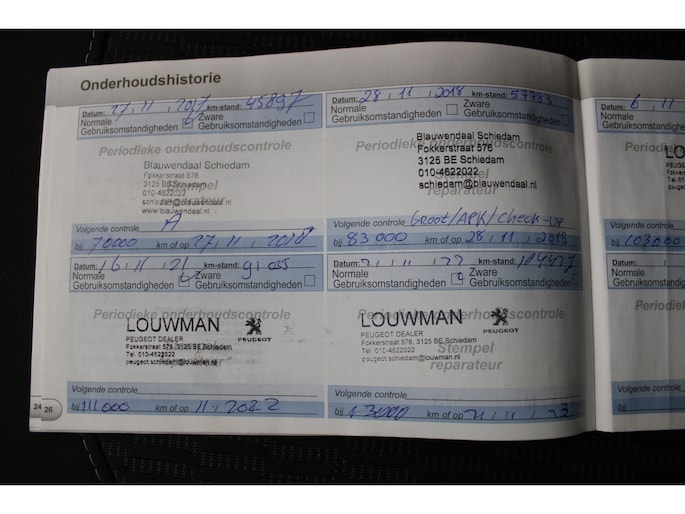 Onderhoudshistorie
Datum: 27, 11, 2017 km-stand: 45897
Normale Zware
Gebruiksomstandigheden Gebruiksomstandigheden
Periodieke onderhoudscontrole
Blauwendaal Schiedam
Fokkerstraat 576
3125 BE Schiedam
010-4622022
schiedam@blauwendaal.nl
www.blauwendaal.nl
Volgende controle A
bij 70000 km of op 27, 11, 2018
Datum: 28, 11, 2018 km-stand: 57783
Normale Zware
Gebruiksomstandigheden Gebruiksomstandigheden
Periodieke onderhoudscontrole
Blauwendaal Schiedam
Fokkerstraat 576
3125 BE Schiedam
010-4622022
schiedam@blauwendaal.nl
Stempel
reparateur
Volgende controle Groot/APK/Check-UP
bij 83000 km of op 28, 11, 2019
Datum: 16, 11, 21 km-stand:
Normale Zware
Gebruiksomstandigheden Gebruiksomstandigheden
Periodieke onderhoudscontrole
LOUWMAN
PEUGEOT
PEUGEOT DEALER
Fokkerstraat 576, 3125 BE Schiedam
Tel. 010-4622022
peugeot.schiedam@louwman.nl
Volgende controle
bij 111000 km of op 11, 2022
Datum: km-stand:
Normale Zware
Gebruiksomstandigheden Gebruiksomstandigheden
Periodieke onderhoudscontrole
LOUWMAN
PEUGEOT
PEUGEOT DEALER
Fokkerstraat 576, 3125 BE Schiedam
Tel. 010-4622022
peugeot.schiedam@louwman.nl
Stempel
reparateur
Volgende controle
bij km of op 23
24
26
Datum: 6, 11
Normale
Gebruiksom
Periodie
Volgende
bij 103000
Datum:
Normale
Gebruiksom
Periodie
Volgende
bij